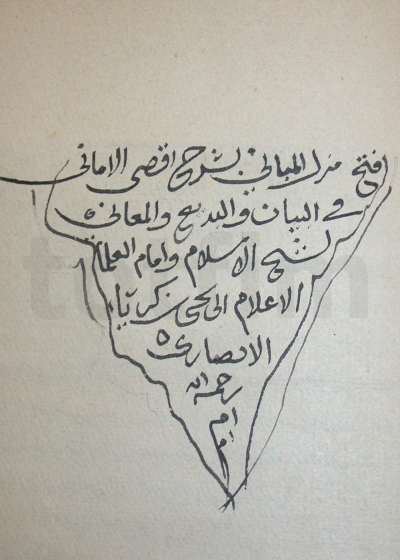 فتح منزل المباني بشرح اقصى الاماني
في البيان والبديع والمعاني
لشيخ الاسلام وامام العلماء
الاعلام ابى يحيى زكرياء
الانصارى
رحمه الله
ام